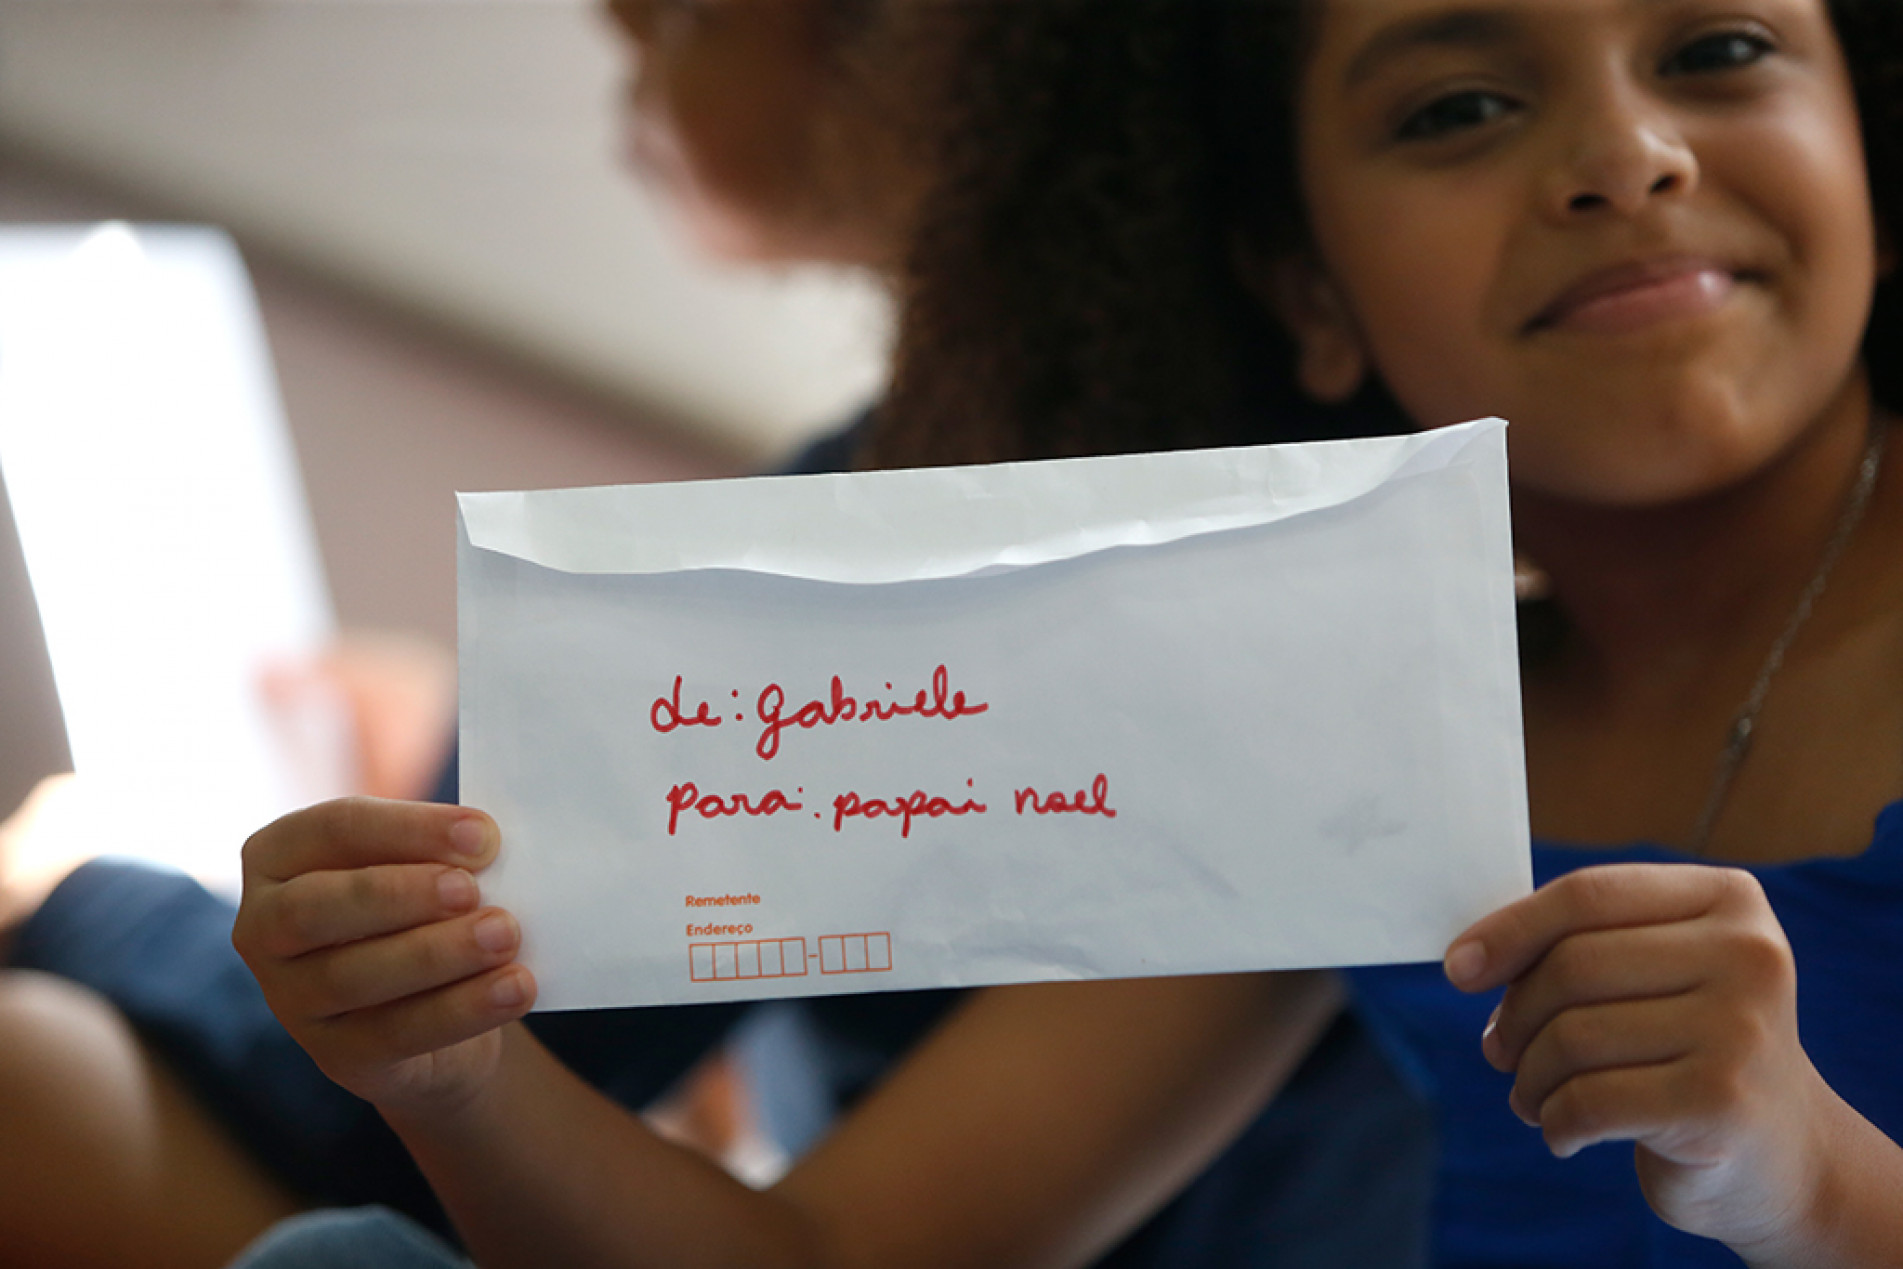 de: Gabriele
para: papai noel
Remetente
Endereço